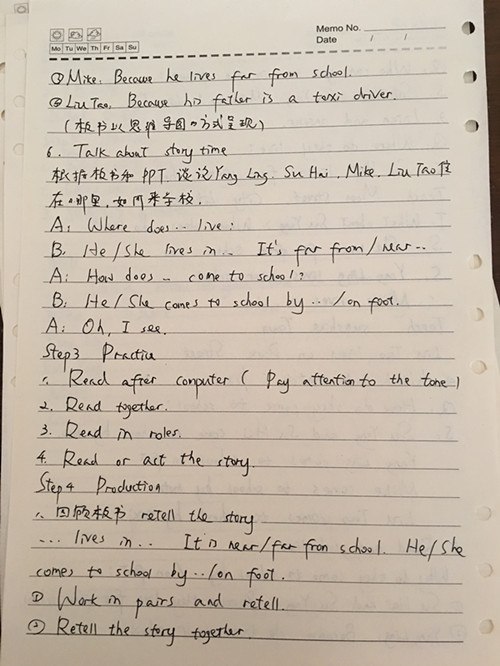 Memo No.
Mo Tu We Th Fr Sa Su
Date / /
① Mike. Because he lives far from school.
② Liu Tao. Because his father is a taxi driver.
(板书以思维导图的方式呈现)
6. Talk about story time
根据板书和 PPT 谈谈 Yang Ling. Su Hai. Mike. Liu Tao 住
在哪里, 如何来学校.
A: Where does... live?
B. He/She lives in... It's far from/near...
A: How does... come to school?
B: He/She comes to school by.../on foot.
A: Oh, I see.
Step3 Practice
1. Read after computer ( Pay attention to the tone )
2. Read together.
3. Read in roles.
4. Read or act the story.
Step4 Production
1. 回顾板书 retell the story
... lives in... It is near/far from school. He/She
comes to school by.../on foot.
① Work in pairs and retell.
② Retell the story together.